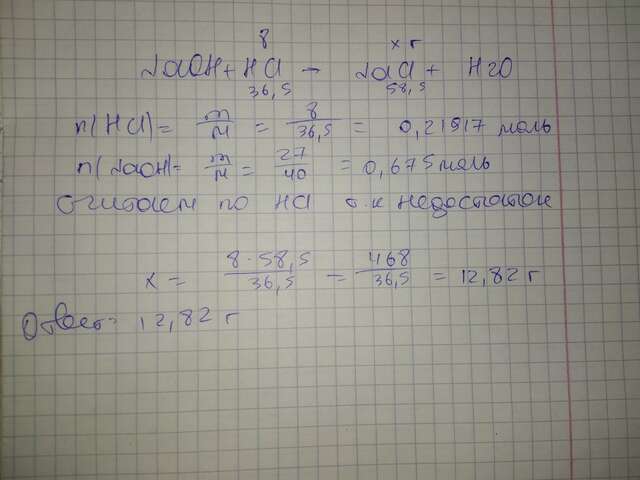 8 x г
NaOH + HCl — NaCl + H2O
36,5 58,5
n(HCl) = m/M = 8/36,5 = 0,21917 моль
n(NaOH) = m/M = 27/40 = 0,675 моль
Считаем по HCl т.к недостаток
x = 8·58,5/36,5 = 468/36,5 = 12,82 г
Ответ: 12,82 г